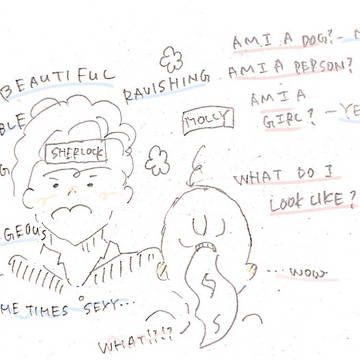 BEAUTIFUL
RAVISHING
AM I A DOG? - N
AM I A PERSON?
AM I A
GIRL? - YE
MOLLY
SHERLOCK
WHAT DO I
LOOK LIKE?
... WOW
WHAT!?!?